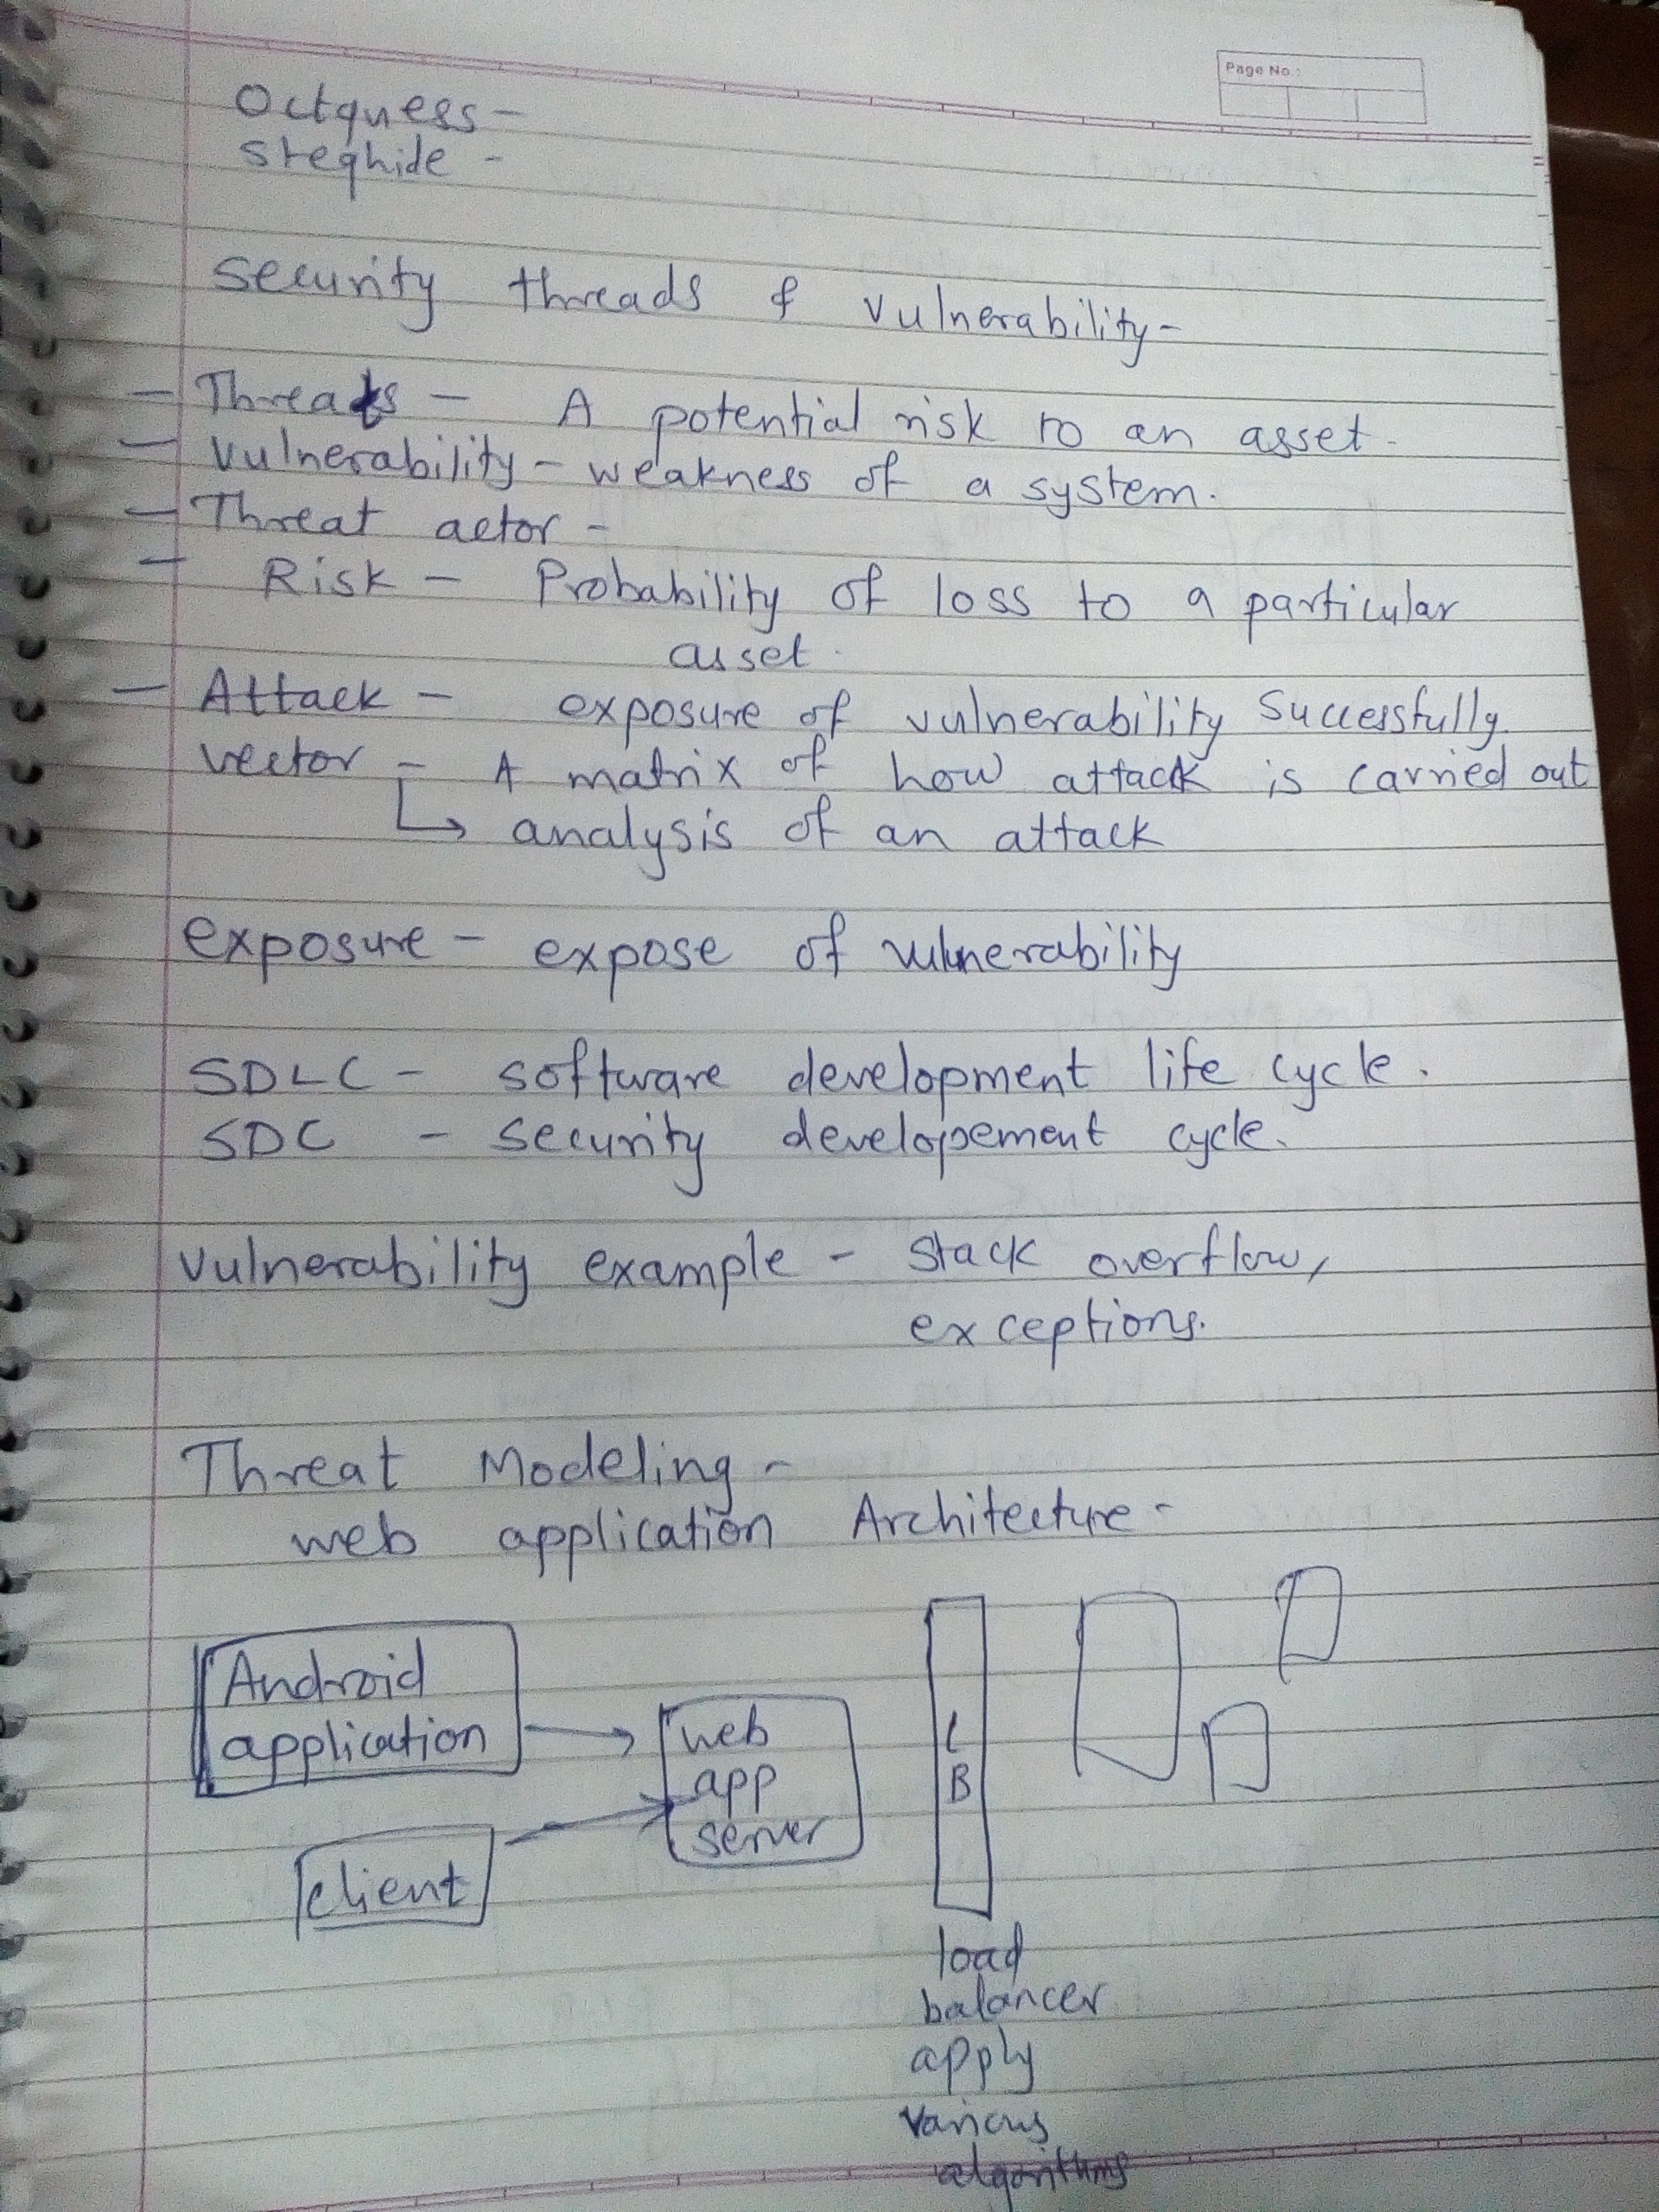 Page No.:
Outguess -
steghide -
Security threads & Vulnerability -
- Threats - A potential risk to an asset.
- Vulnerability - weakness of a system.
- Threat actor -
- Risk - Probability of loss to a particular
asset.
- Attack - exposure of vulnerability Successfully.
vector - A matrix of how attack is carried out
↳ analysis of an attack
exposure - expose of vulnerability
SDLC - software development life cycle.
SDC - security developement cycle.
Vulnerability example - Stack overflow,
exceptions.
Threat Modeling -
web application Architecture -
Android
application
web
app
server
client
L
B
load
balancer
apply
various
algorithms